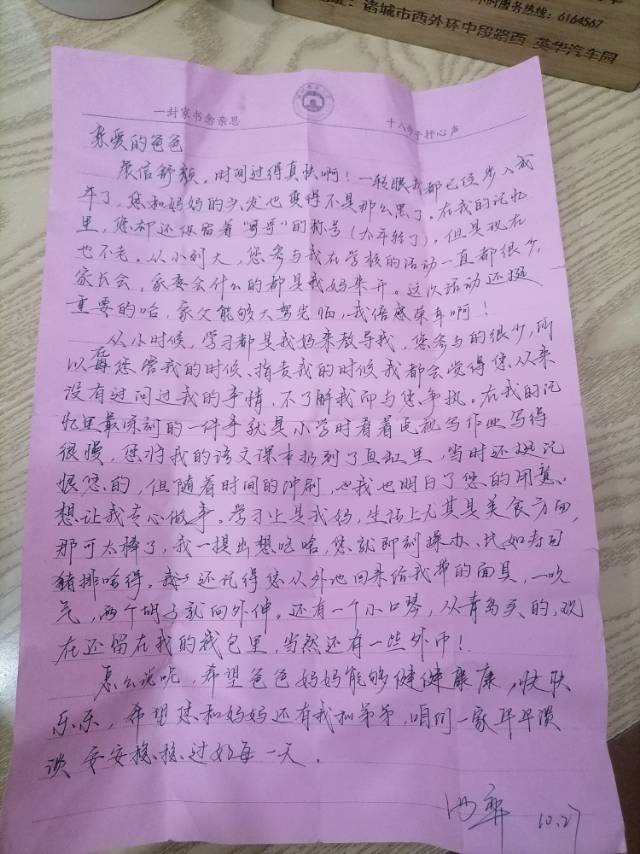 服务热线：6164567
诸城市西外环中段路西 英华汽车园
一封家书念亲恩
十八
抒心声
亲爱的爸爸
展信舒颜，时间过得真快啊！一转眼我都已经步入成
年了，您和妈妈的头发也变得不是那么黑了。在我的记忆
里，您却还保留着“哥哥”的称号（太年轻了），但是现在
也不老。从小到大，您参与我在学校的活动一直都很少，
家长会，家委会什么的都是我妈来开。这次活动还挺
重要的哈，家父能够大驾光临，我倍感荣幸啊！
从小时候，学习都是我妈来教导我，您参与的很少，所
以每您管我的时候、指责我的时候我都会觉得您从来
没有过问过我的事情，不了解我而与您争执。在我的记
忆里最深刻的一件事就是小学时看着电视写作业写得
很慢，您将我的语文课本扔到了鱼缸里，当时还挺记
恨您的，但随着时间的冲刷，我也明白了您的用意，
想让我专心做事。学习上是我妈，生活上尤其是美食方面，
那可太棒了，我一提出想吃啥，您就即刻操办、比如寿司
猪排啥得。我还记得您从外地回来给我带的面具，一吹
气，两个胡子就向外伸。还有一个小口琴，从青岛买的，现
在还留在我的钱包里，当然还有一些外币！
怎么说呢，希望爸爸妈妈能够健健康康，快快
乐乐，希望您和妈妈还有我和弟弟，咱们一家平平淡
淡 安安稳稳过好每一天。
10.27